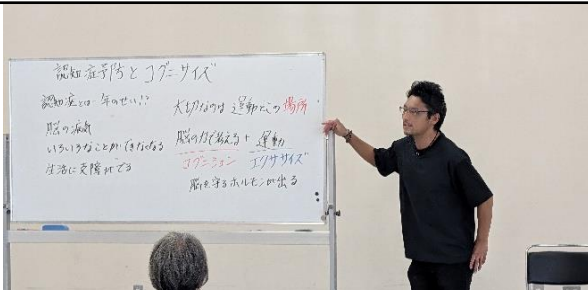 認知症予防とコグニサイズ
認知症とは 年のせい!?
脳の病気
いろいろなことができなくなる
生活に支障がでる
大切なのは 運動とこの場所
脳の力で考える + 運動
コグニション エクササイズ
脳を守るホルモンが出る